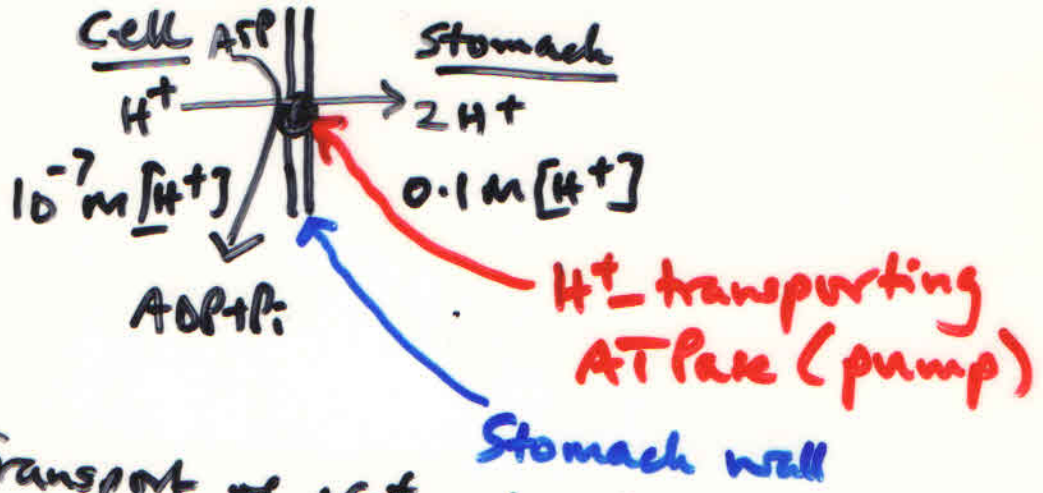 Cell ATP Stomach
H⁺ 2H⁺
10⁻⁷ M [H⁺] 0.1 M [H⁺]
ADP+Pi
H⁺-transporting
ATPase (pump)
Stomach wall
Transport of